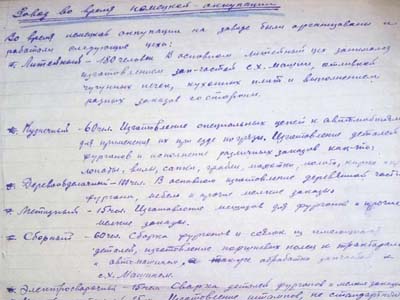 Завод во время немецкой оккупации
Во время немецкой оккупации на заводе были организованы и
работали следующие цеха:
* Литейный - 180 человек. В основном литейный цех занимался
изготовлением запчастей с.х. машин, отливкой
чугунных печей, кухонных плит и выполнением
разных заказов со стороны.
* Кузнечный - 60 чел. Изготовление специальных цепей к автомобилям
для применения их при езде по грязи. Изготовление деталей
фургонов и исполнение различных заказов как-то:
лопаты, вилы, сапки, грабли, молота, кирки и
* Деревообделочный - чел. В основном изготовление деревянной части
фургона, мебели и прочие мелкие заказы
* Метизный - 15 чел. Изготовление метизов для фургонов и прочие
мелкие заказы.
* Сборный - 60 чел. Сборка фургонов и сеялок из имеющихся
деталей, изготовление поршневых колец к тракторам
и автомашинам, а также обработка запчастей к
с.х. машинам.
* Электросварочный - 15 чел. Сварка деталей фургонов и мелких заказов
Изготовление штампов, не стандартных